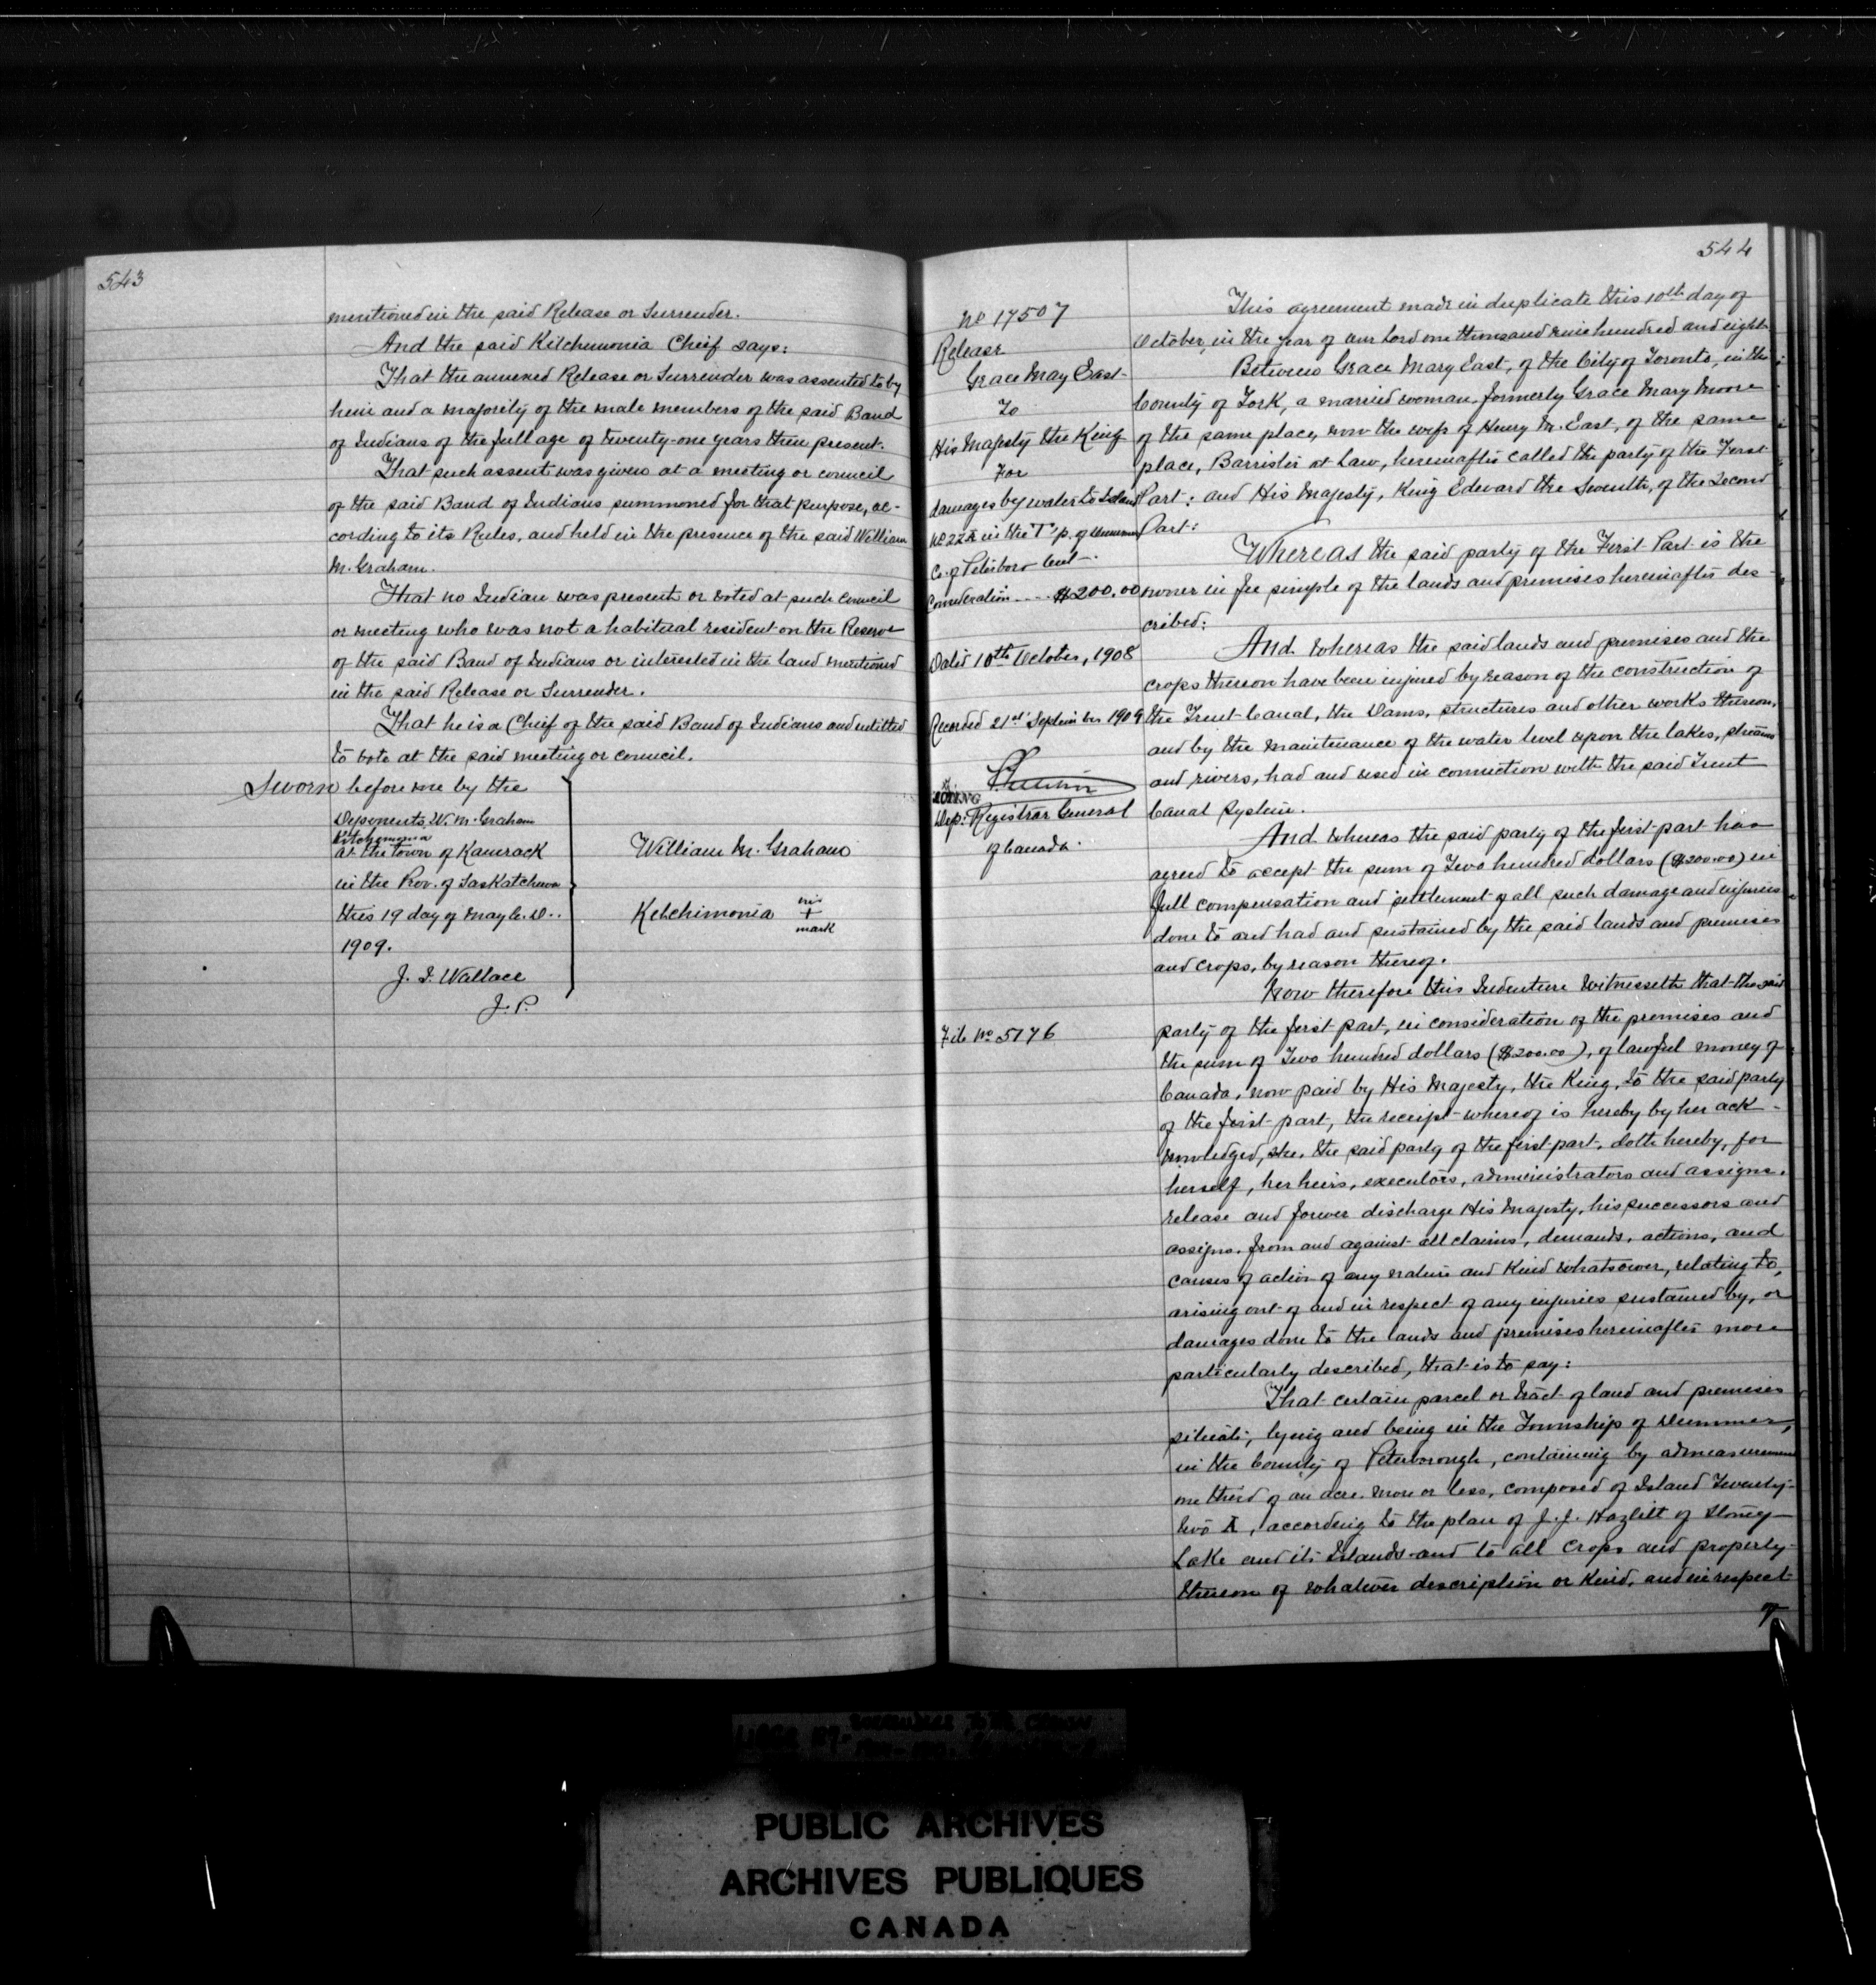 543
mentioned in the said Release or Surrender.
And the said Kitchemonia Cheif says:
That the annexed Release or Surrender was assented to by
him and a majority of the male members of the said Band
of Indians of the full age of twenty-one years then present.
That such assent was given at a meeting or council
of the said Band of Indians summoned for that purpose, ac-
cording to its Rules, and held in the presence of the said William
M. Graham.
That no Indian was present or voted at such council
or meeting who was not a habitual resident on the Reserve
of the said Band of Indians or interested in the land mentioned
in the said Release or Surrender.
That he is a Chief of the said Band of Indians and entitled
to vote at the said meeting or council.
Sworn before me by the
Deponents, W. M. Graham
Kitchemonia
at the town of Kamsack
in the Prov. of Saskatchewan
this 19 day of May A.D..
1909.
J. I. Wallace
J. P.
William M. Graham
Kelchimonia his
+
mark
544
No 17507
Release
Grace May East
To
His Majesty the King
For
damages by water to Island
No 22A in the T'p. of Dummer
Co. of Peterboro Ont.
Consideration .... $200.00
Dated 10th October, 1908
Recorded 21st September 1909
ACTING
Dep: Registrar General
of Canada.
File No 5176
This agreement made in duplicate this 10th day of
October, in the year of our Lord one thousand nine hundred and eight
Between Grace Mary East, of the City of Toronto, in the
County of York, a married woman, formerly Grace Mary Moore
of the same place, now the wife of Henry M. East, of the same
place, Barrister at Law, hereinafter called the party of the First
Part: and His Majesty, King Edward the Seventh, of the Second
Part:
Whereas the said party of the First Part is the
owner in fee simple of the lands and premises hereinafter des-
cribed:
And whereas the said lands and premises and the
crops thereon have been injured by reason of the construction of
the Trent Canal, the Dams, structures and other works thereon,
and by the maintenance of the water level upon the lakes, streams
and rivers, had and used in connection with the said Trent
Canal System.
And whereas the said party of the first part has
agreed to accept the sum of Two hundred dollars ($200.00) in
full compensation and settlement of all such damage and injuries
done to and had and sustained by the said lands and premises
and crops, by reason thereof.
Now therefore this Indenture Witnesseth that the said
party of the first part, in consideration of the premises and
the sum of Two hundred dollars ($200.00), of lawful money of
Canada, now paid by His Majesty, the King, to the said party
of the first part, the receipt whereof is hereby by her ack-
nowledged, she, the said party of the first part, doth hereby, for
herself, her heirs, executors, administrators and assigns,
release and forever discharge His Majesty, his successors and
assigns, from and against all claims, demands, actions, and
causes of action of any nature and kind whatsoever, relating to,
arising out of and in respect of any injuries sustained by, or
damages done to the lands and premises hereinafter more
particularly described, that is to say:
That certain parcel or tract of land and premises
situate, lying and being in the Township of Dummer,
in the County of Peterborough, containing by admeasurement
one third of an acre more or less, composed of Island Twenty-
two A, according to the plan of J. J. Hazlitt of Stoney
Lake and its Islands and to all crops and property
thereon of whatever description or kind, and in respect
PUBLIC ARCHIVES
ARCHIVES PUBLIQUES
CANADA